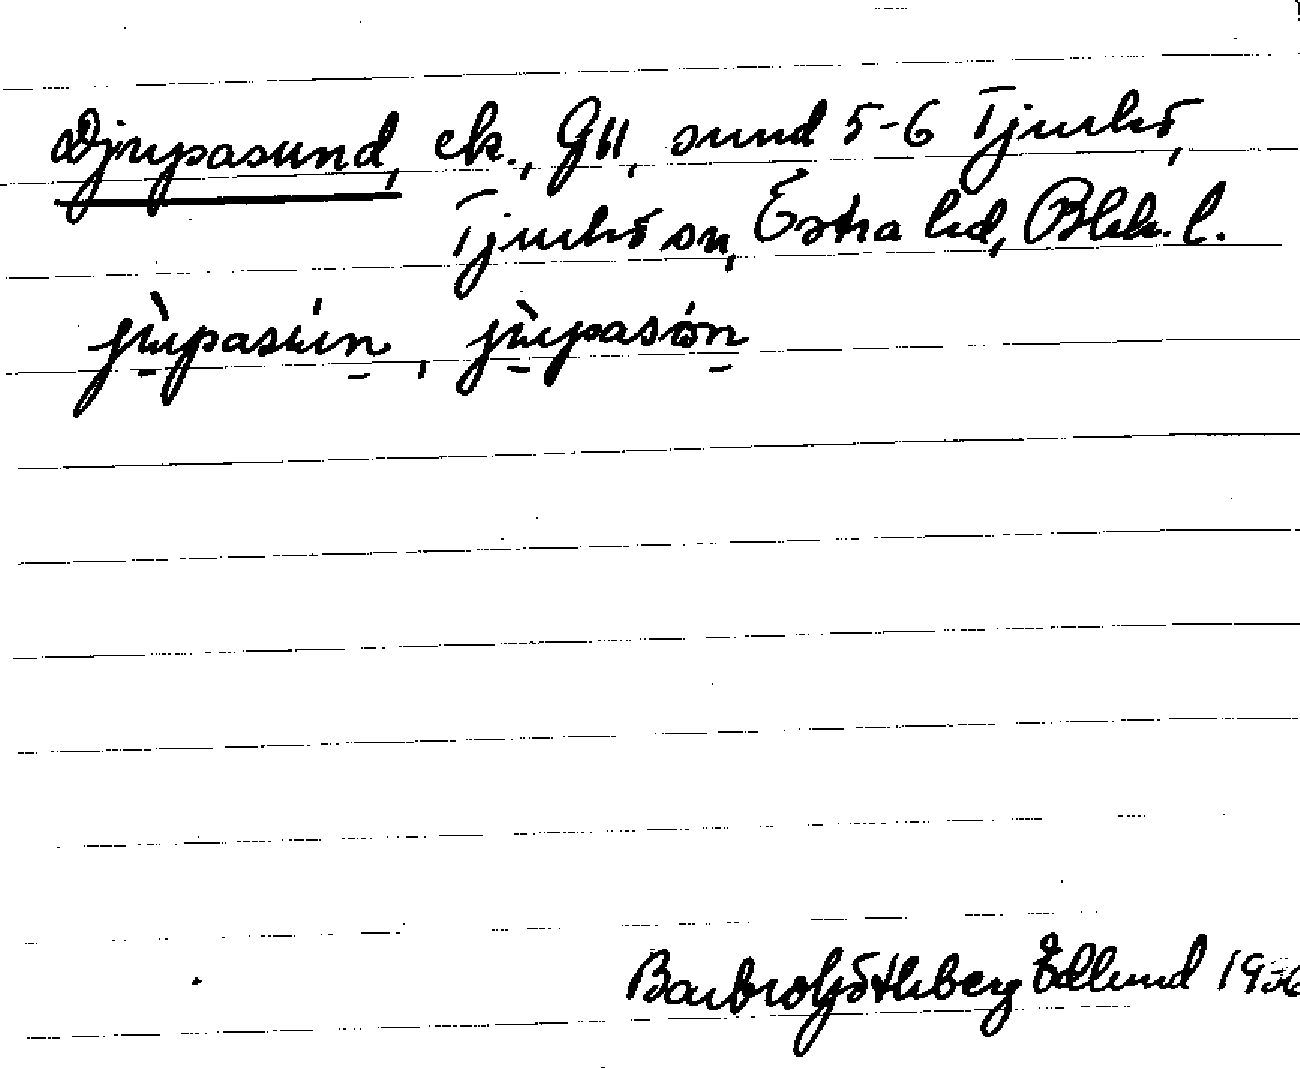 Djupasund, ek., G11, sund 5-6 Tjurkö,
Tjurkö sn, Östra hd, Blek. l.
jùpasún, jùpasón
Barbro Götheberg Edlund 1956